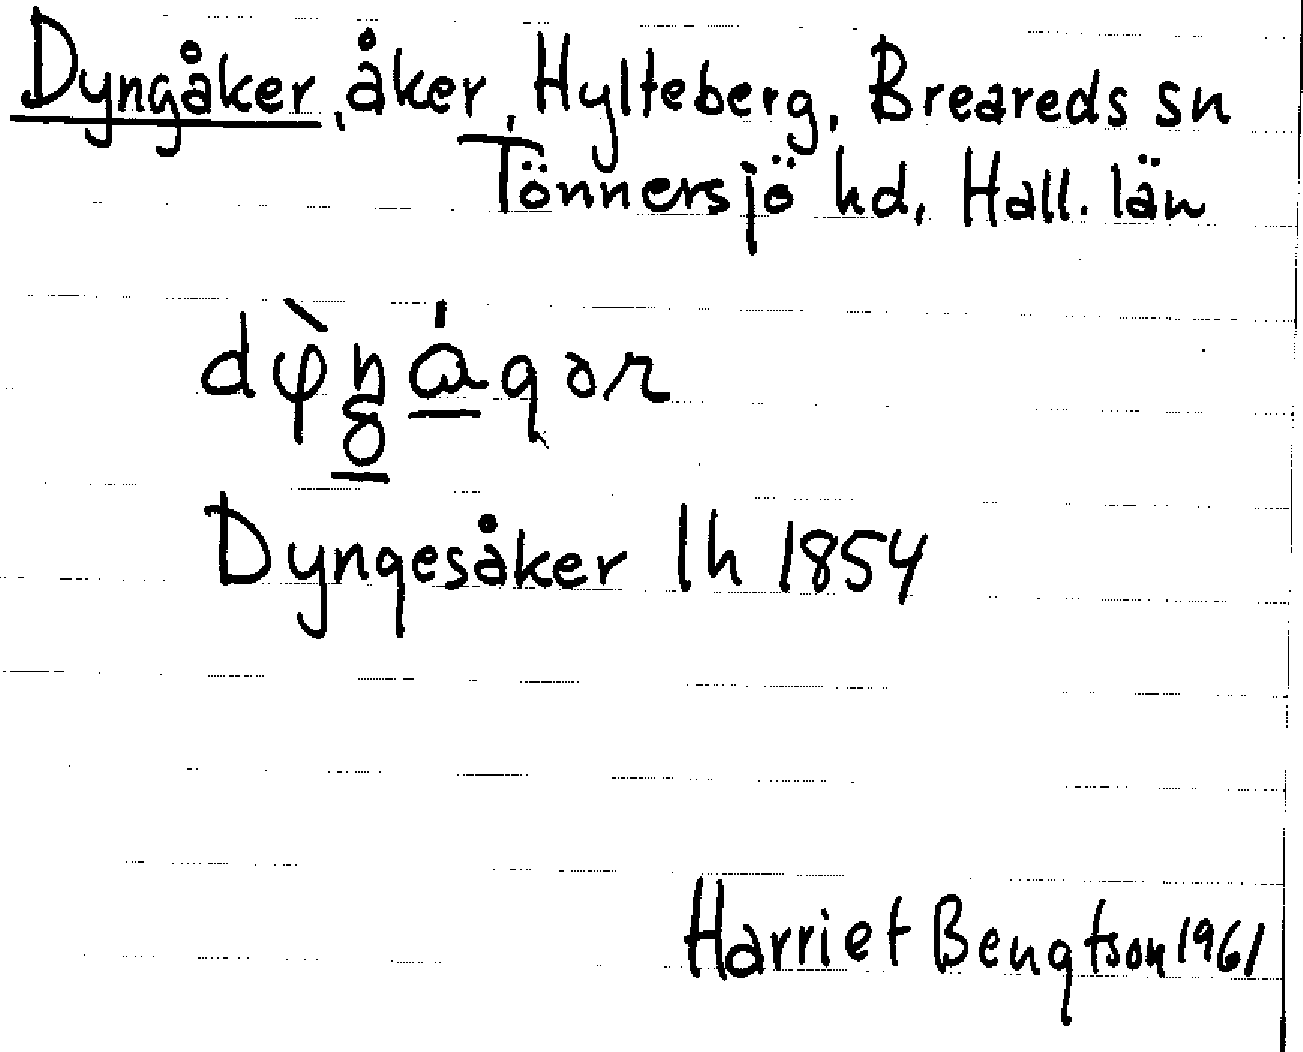 Dyngåker, åker, Hylteberg, Breareds sn
Tönnersjö hd, Hall. län
Dyngesåker lh 1854
Harriet Bengtson 1961